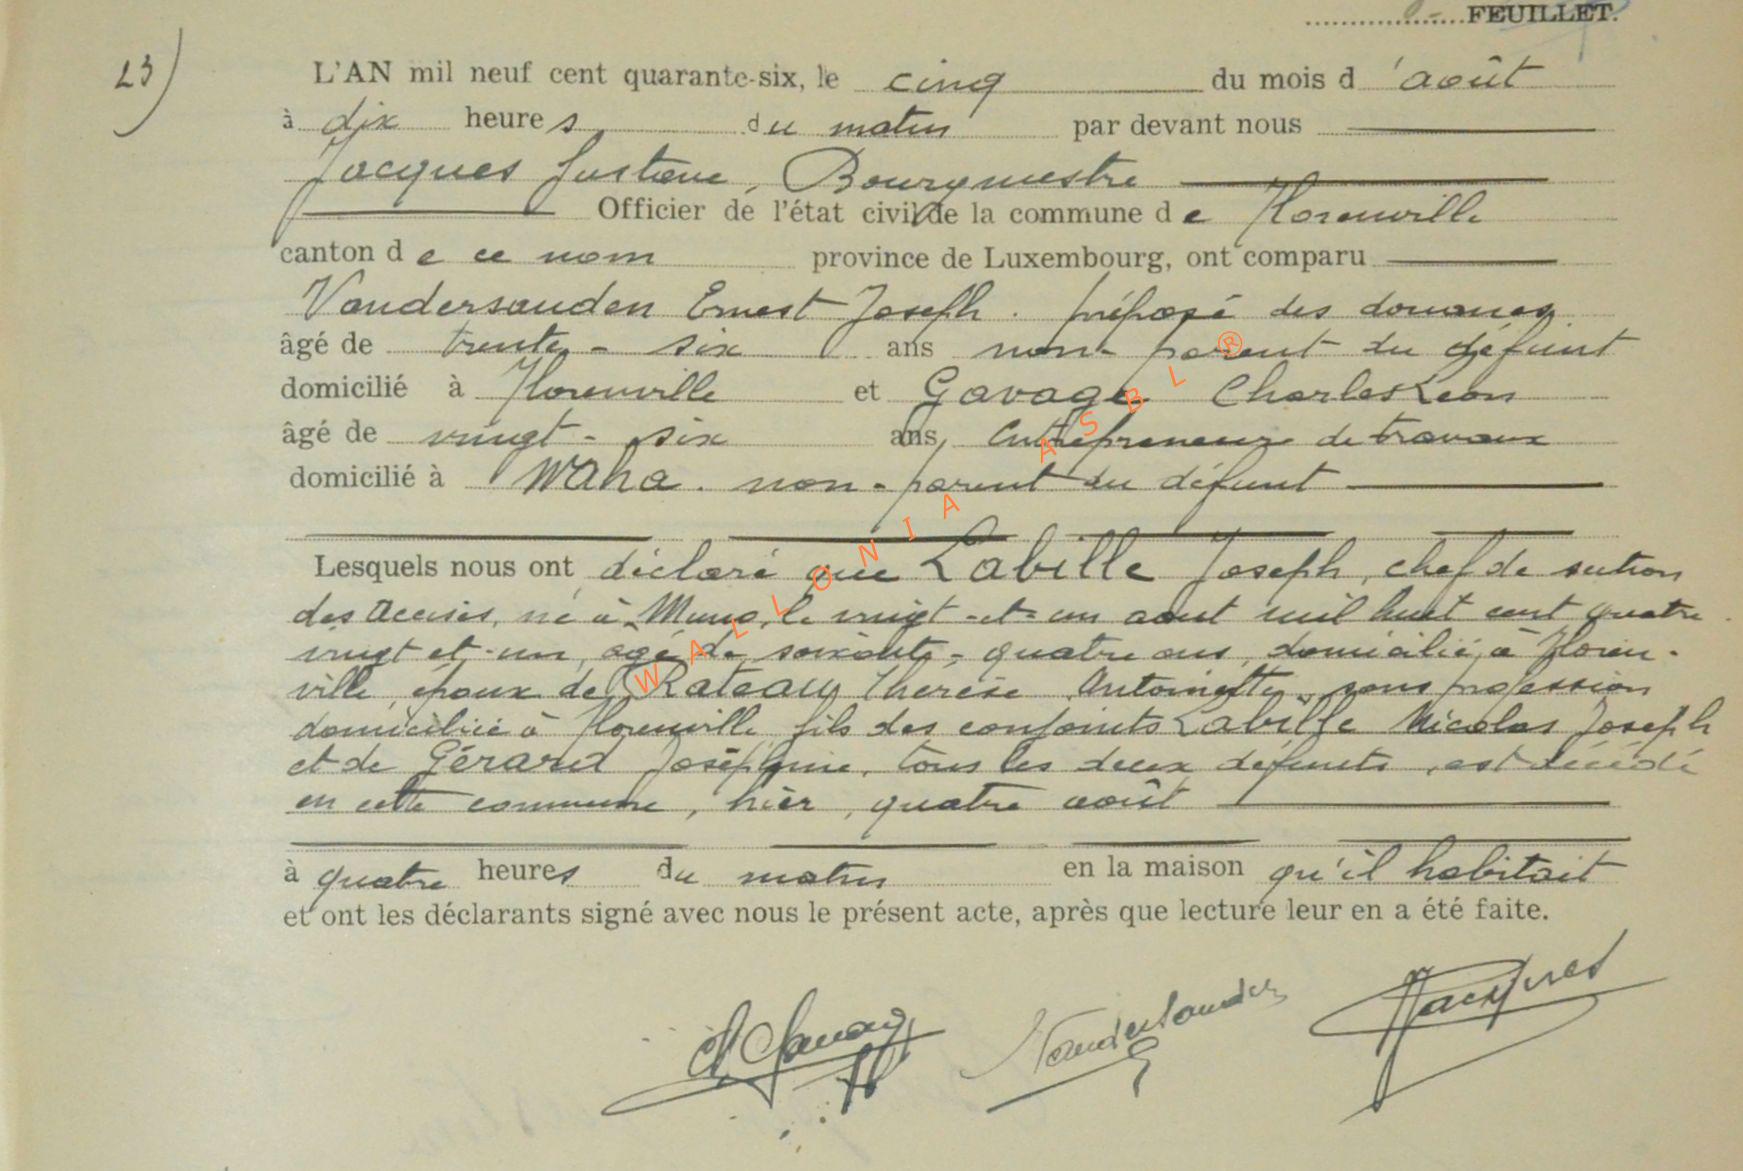 FEUILLET.
23)
L'AN mil neuf cent quarante-six, le cinq du mois d'août
à dix heures du matin par devant nous
Jacques Gustave, Bourgmestre
Officier de l'état civil de la commune de Florenville
canton de ce nom province de Luxembourg, ont comparu
Vandersanden Ernest Joseph. préposé des douanes
âgé de trente-six ans non-parent du défunt
domicilié à Florenville et Gavage Charles Léon
âgé de vingt-six ans, Entrepreneur de travaux
domicilié à Waha. non-parent du défunt
Lesquels nous ont déclaré que Labille Joseph, chef de section
des accises, né à Muno, le vingt-et-un aout mil huit cent quatre
vingt et-un, âgé de soixante-quatre ans, domicilié à Floren-
ville, époux de Rateau Thérèse Antoinette, sans profession
domiciliée à Florenville fils des conjoints Labille Nicolas Joseph
et de Gérard Joséphine, tous les deux défunts, est décédé
en cette commune, hier, quatre août
à quatre heures du matin en la maison qu'il habitait
et ont les déclarants signé avec nous le présent acte, après que lecture leur en a été faite.
Ch Gavage Vandersanden Jacques
WALLONIA ASBL ®